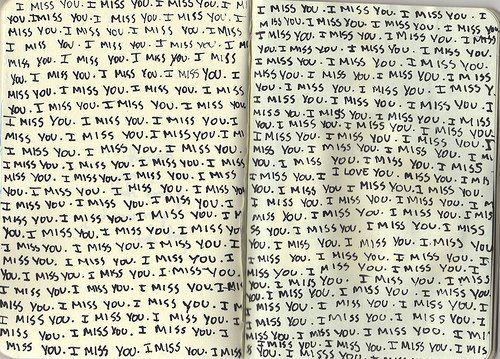 I MISS YOU. I MISS YOU. I MISS YOU. I
YOU. I MISS YOU. I MISS YOU. I MISS
MISS YOU. I MISS YOU. I MISS YOU. I MISS
I MISS YOU. I MISS YOU. I MISS YOU. I
MISS YOU. I MISS YOU. I MISS YOU. I MISS
YOU. I MISS YOU. I MISS YOU. I MISS YOU. I
MISS YOU. I MISS YOU. I MISS YOU. I MISS
YOU. I MISS YOU. I MISS YOU. I MISS
YOU. I MISS YOU. I MISS YOU. I MISS YOU.
I MISS YOU. I MISS YOU. I MISS YOU. I
MISS YOU. I MISS YOU. I MISS YOU. I
I MISS YOU. I MISS YOU. I MISS YOU.
I MISS YOU. I MISS YOU. I MISS YOU. I MISS
MISS YOU. I MISS YOU. I MISS YOU. I MISS
YOU. I MISS YOU. I MISS YOU. I MISS YOU
I MISS YOU. I MISS YOU. I MISS YOU. I
MISS YOU. I MISS YOU. I MISS YOU. I
YOU. I MISS YOU. I MISS YOU. I MISS YOU.
I MISS YOU. I MISS YOU. I MISS YOU. I
MISS YOU. I MISS YOU. I MISS YOU. I
YOU. I MISS YOU. I MISS YOU. I MISS YOU.
I MISS YOU. I MISS YOU. I MISS YOU. I MISS
MISS YOU. I MISS YOU. I MISS YOU. I
I MISS YOU. I MISS YOU. I MISS YOU.
MISS YOU. I MISS YOU. I MISS YOU. I
MISS YOU. I MISS YOU. I MISS YOU. I MISS
I MISS YOU. I MISS YOU. I MISS YOU. I
YOU. I MISS YOU. I MISS YOU. I MISS YOU. I
MISS YOU. I MISS YOU. I MISS YOU. I MISS YOU
YOU. I MISS YOU. I MISS YOU. I MISS
YOU. I MISS YOU. I MISS YOU. I MISS YOU.
I MISS YOU. I MISS YOU. I MISS YOU.
MISS YOU. I MISS YOU. I MISS YOU. I MISS
YOU. I MISS YOU. I MISS YOU. I MISS
I MISS YOU. I MISS YOU. I MISS YOU. I
MISS YOU. I MISS YOU. I MISS YOU. I MISS
YOU. I MISS YOU. I MISS YOU. I MISS YOU
I MISS YOU. I MISS YOU. I MISS YOU. I
MISS YOU. I MISS YOU. I MISS YOU. I MISS
YOU. I MISS YOU. I MISS YOU. I MISS
I MISS YOU. I LOVE YOU. MISS YOU. I
YOU. I MISS YOU. I MISS YOU. I MISS
I MISS YOU. I MISS YOU. I MISS YOU.
MISS YOU. I MISS YOU. I MISS YOU. I MISS
YOU. I MISS YOU. I MISS YOU. I MISS
YOU. I MISS YOU. I MISS YOU. I MISS YOU
I MISS YOU. I MISS YOU. I MISS YOU. I
MISS YOU. I MISS YOU. I MISS YOU. I
I MISS YOU. I MISS YOU. I MISS YOU.
YOU. I MISS YOU. I MISS YOU. I MISS YOU
MISS YOU. I MISS YOU. I MISS YOU. I MISS
YOU. I MISS YOU. I MISS YOU. I MISS YOU.
I MISS YOU. I MISS YOU. I MISS YOU. I
MISS YOU. I MISS YOU. I MISS YOU. I MISS